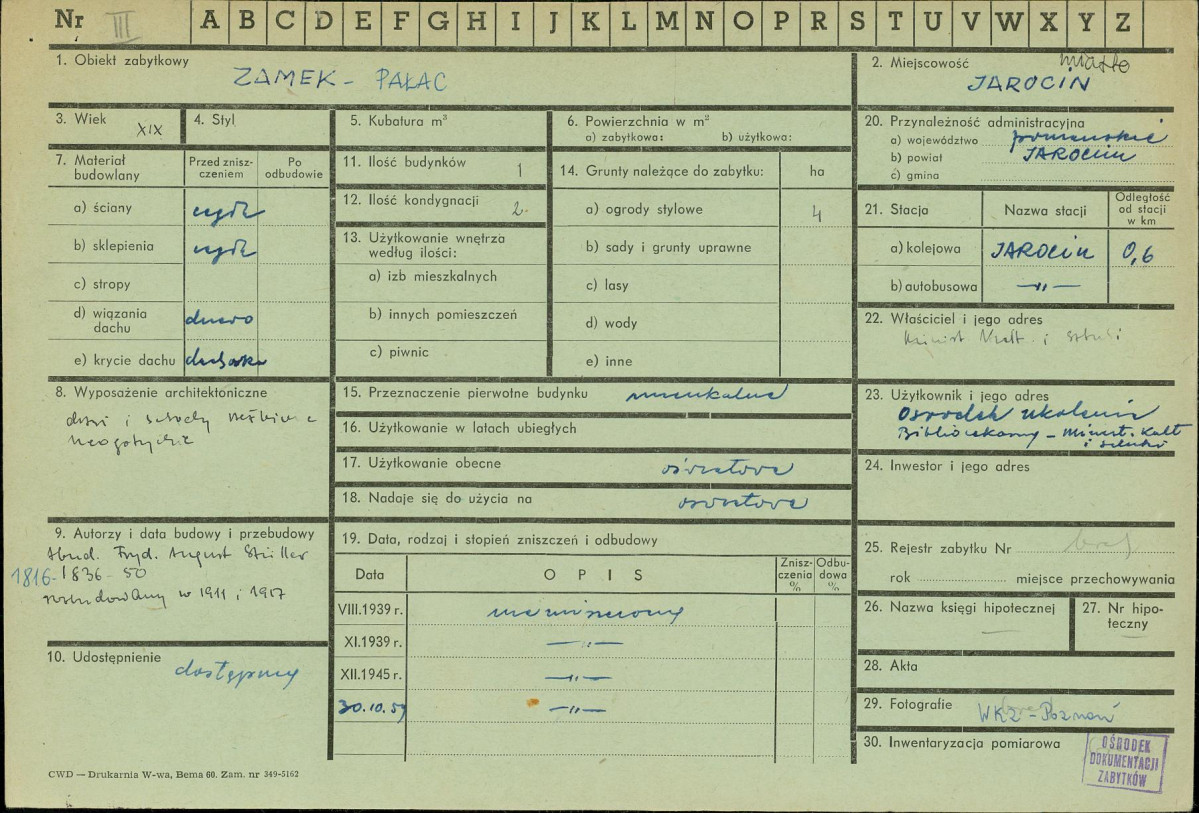 Nr III A B C D E F G H I J K L M N O P R S T U V W X Y Z
1. Obiekt zabytkowy
ZAMEK - PAŁAC
2. Miejscowość miasto
JAROCIN
3. Wiek XIX
4. Styl
5. Kubatura m³
6. Powierzchnia w m²
a) zabytkowa: b) użytkowa:
20. Przynależność administracyjna
a) województwo poznańskie
b) powiat JAROCIN
c) gmina
7. Materiał budowlany
Przed zniszczeniem
Po odbudowie
a) ściany cegła
b) sklepienia cegła
c) stropy
d) wiązania dachu drewno
e) krycie dachu dachówka
11. Ilość budynków 1
12. Ilość kondygnacji 2.
13. Użytkowanie wnętrza
według ilości:
a) izb mieszkalnych
b) innych pomieszczeń
c) piwnic
14. Grunty należące do zabytku: ha
a) ogrody stylowe 4
b) sady i grunty uprawne
c) lasy
d) wody
e) inne
21. Stacja
Nazwa stacji
Odległość
od stacji
w km
a) kolejowa JAROCIN 0,6
b) autobusowa —"—
22. Właściciel i jego adres
i sztuki
8. Wyposażenie architektoniczne
drzwi i schody
neogotyckie
15. Przeznaczenie pierwotne budynku mieszkalne
16. Użytkowanie w latach ubiegłych
17. Użytkowanie obecne oświatowe
18. Nadaje się do użycia na oświatowe
23. Użytkownik i jego adres
Ośrodek szkolenia
Bibliotekarzy - Minist. Kult
i sztuki
24. Inwestor i jego adres
9. Autorzy i data budowy i przebudowy
zbud. Fryd. August Stüller
1816- 1836 - 50
rozbudowany w 1911 i 1917
10. Udostępnienie
dostępny
19. Data, rodzaj i stopień zniszczeń i odbudowy
Data
OPIS
Zniszczenia %
Odbudowa %
VIII.1939 r. nie zniszczony
XI.1939 r. —"—
XII.1945 r. —"—
30.10.59 —"—
25. Rejestr zabytku Nr brak
rok miejsce przechowywania
26. Nazwa księgi hipotecznej —
27. Nr hipoteczny —
28. Akta
29. Fotografie
WKZ - Poznań
30. Inwentaryzacja pomiarowa
OŚRODEK
DOKUMENTACJI
ZABYTKÓW
CWD — Drukarnia W-wa, Bema 60. Zam. nr 349-5162